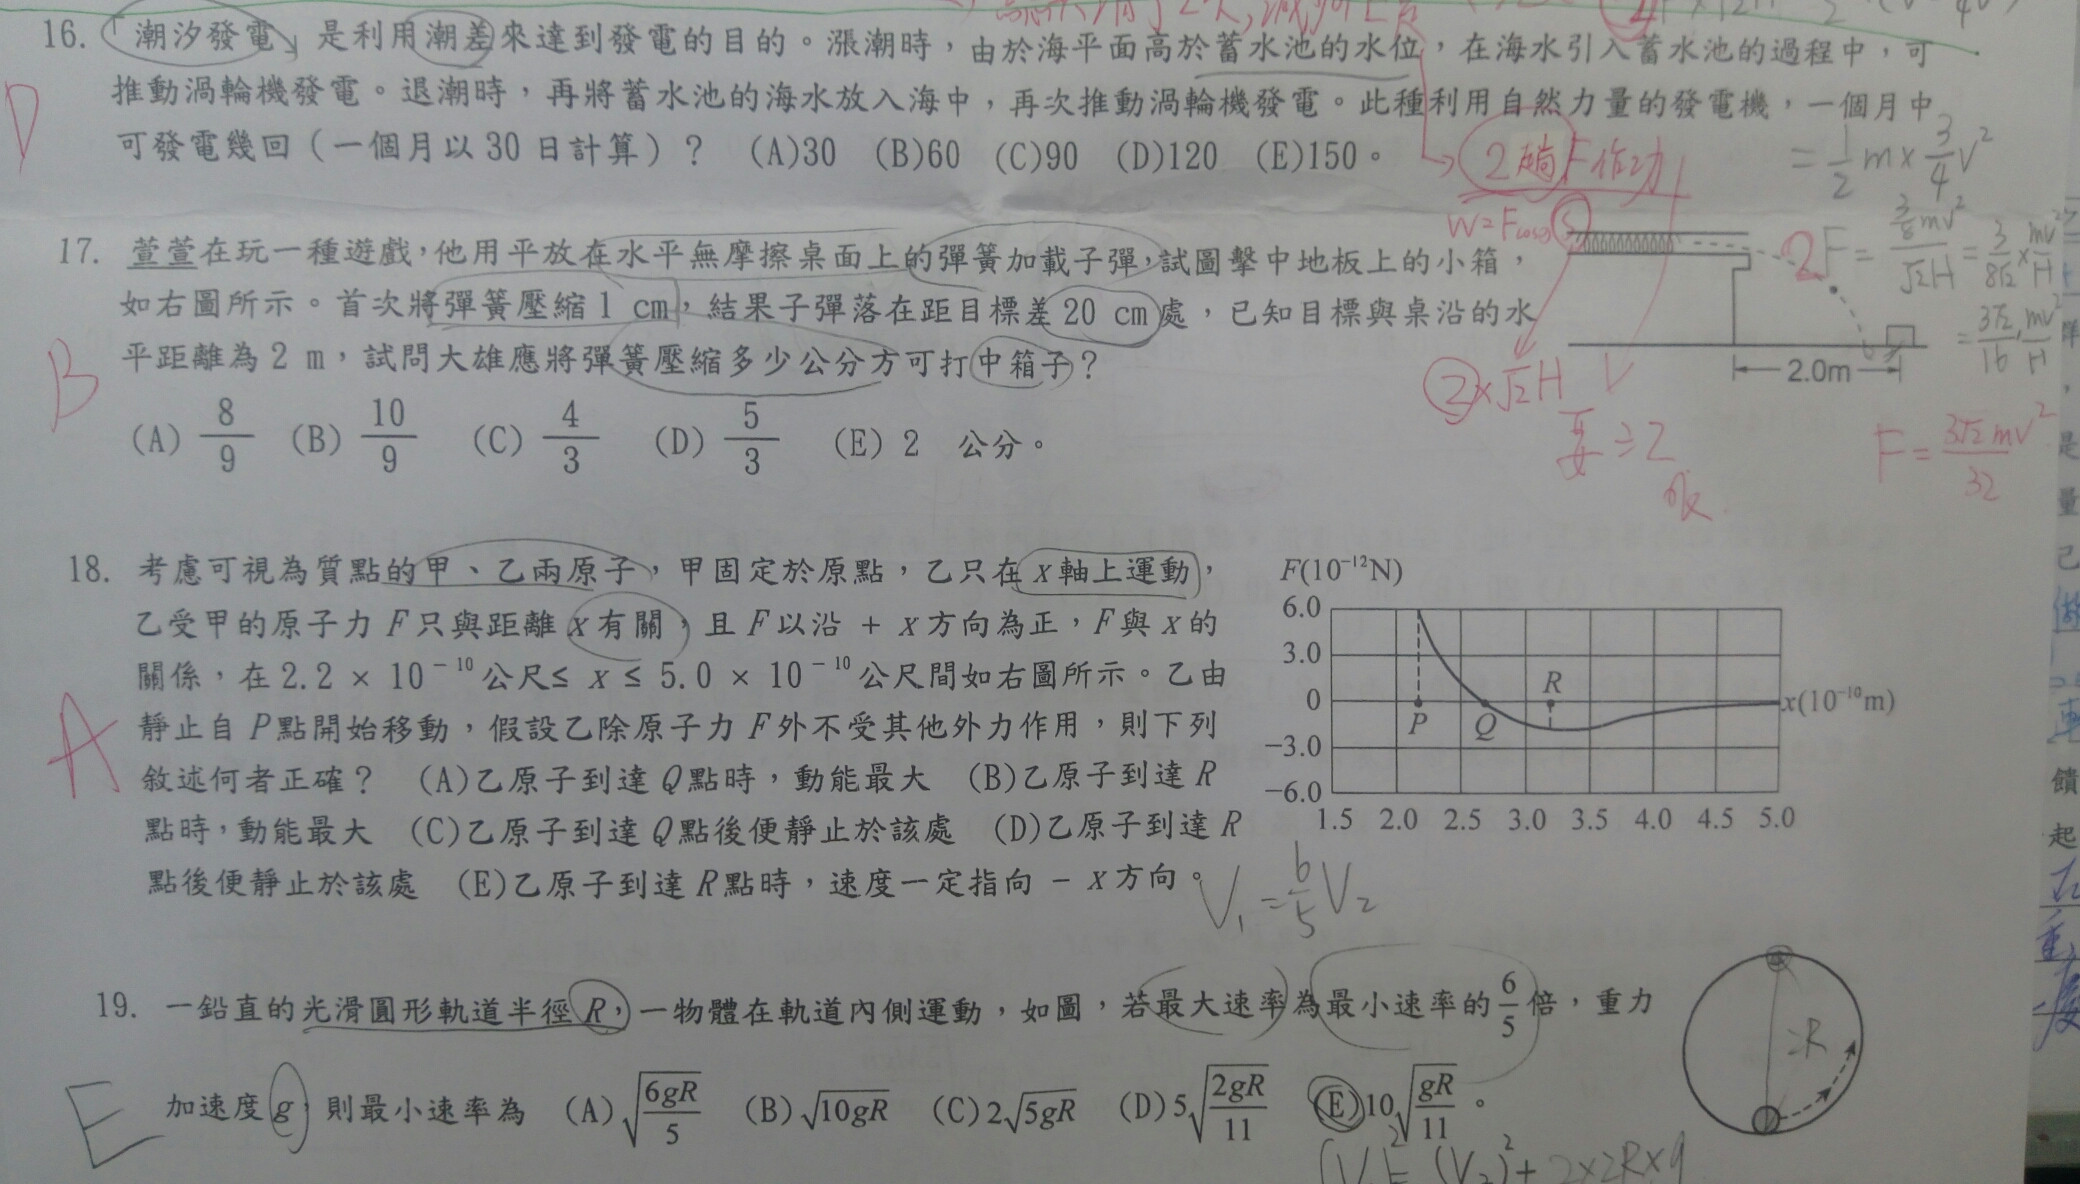 16.「潮汐發電」是利用潮差來達到發電的目的。漲潮時，由於海平面高於蓄水池的水位，在海水引入蓄水池的過程中，可
推動渦輪機發電。退潮時，再將蓄水池的海水放入海中，再次推動渦輪機發電。此種利用自然力量的發電機，一個月中
可發電幾回（一個月以 30 日計算）？ (A)30 (B)60 (C)90 (D)120 (E)150。
D
2趟F作功
= 1/2 m × 3/4 V²
17. 萱萱在玩一種遊戲，他用平放在水平無摩擦桌面上的彈簧加載子彈，試圖擊中地板上的小箱，
如右圖所示。首次將彈簧壓縮 1 cm，結果子彈落在距目標差 20 cm 處，已知目標與桌沿的水
平距離為 2 m，試問大雄應將彈簧壓縮多少公分方可打中箱子？
(A) 8/9 (B) 10/9 (C) 4/3 (D) 5/3 (E) 2 公分。
B
2.0m
2×√2H
要÷2
F = 3√2mv²/32
18. 考慮可視為質點的甲、乙兩原子，甲固定於原點，乙只在 x 軸上運動，
乙受甲的原子力 F 只與距離 x 有關，且 F 以沿 + x 方向為正，F 與 x 的
關係，在 2.2 × 10⁻¹⁰ 公尺≤ x ≤ 5.0 × 10⁻¹⁰ 公尺間如右圖所示。乙由
靜止自 P 點開始移動，假設乙除原子力 F 外不受其他外力作用，則下列
敘述何者正確？ (A)乙原子到達 Q 點時，動能最大 (B)乙原子到達 R
點時，動能最大 (C)乙原子到達 Q 點後便靜止於該處 (D)乙原子到達 R
點後便靜止於該處 (E)乙原子到達 R 點時，速度一定指向 − x 方向。
A
F(10⁻¹²N)
6.0
3.0
0
−3.0
−6.0
P
Q
R
x(10⁻¹⁰m)
1.5 2.0 2.5 3.0 3.5 4.0 4.5 5.0
V₁ = 6/5 V₂
19. 一鉛直的光滑圓形軌道半徑 R，一物體在軌道內側運動，如圖，若最大速率為最小速率的 6/5 倍，重力
加速度 g，則最小速率為 (A)√(6gR/5) (B)√(10gR) (C)2√(5gR) (D)5√(2gR/11) (E)10√(gR/11)。
E
2R
(V₁)² = (V₂)² + 2×2R×g